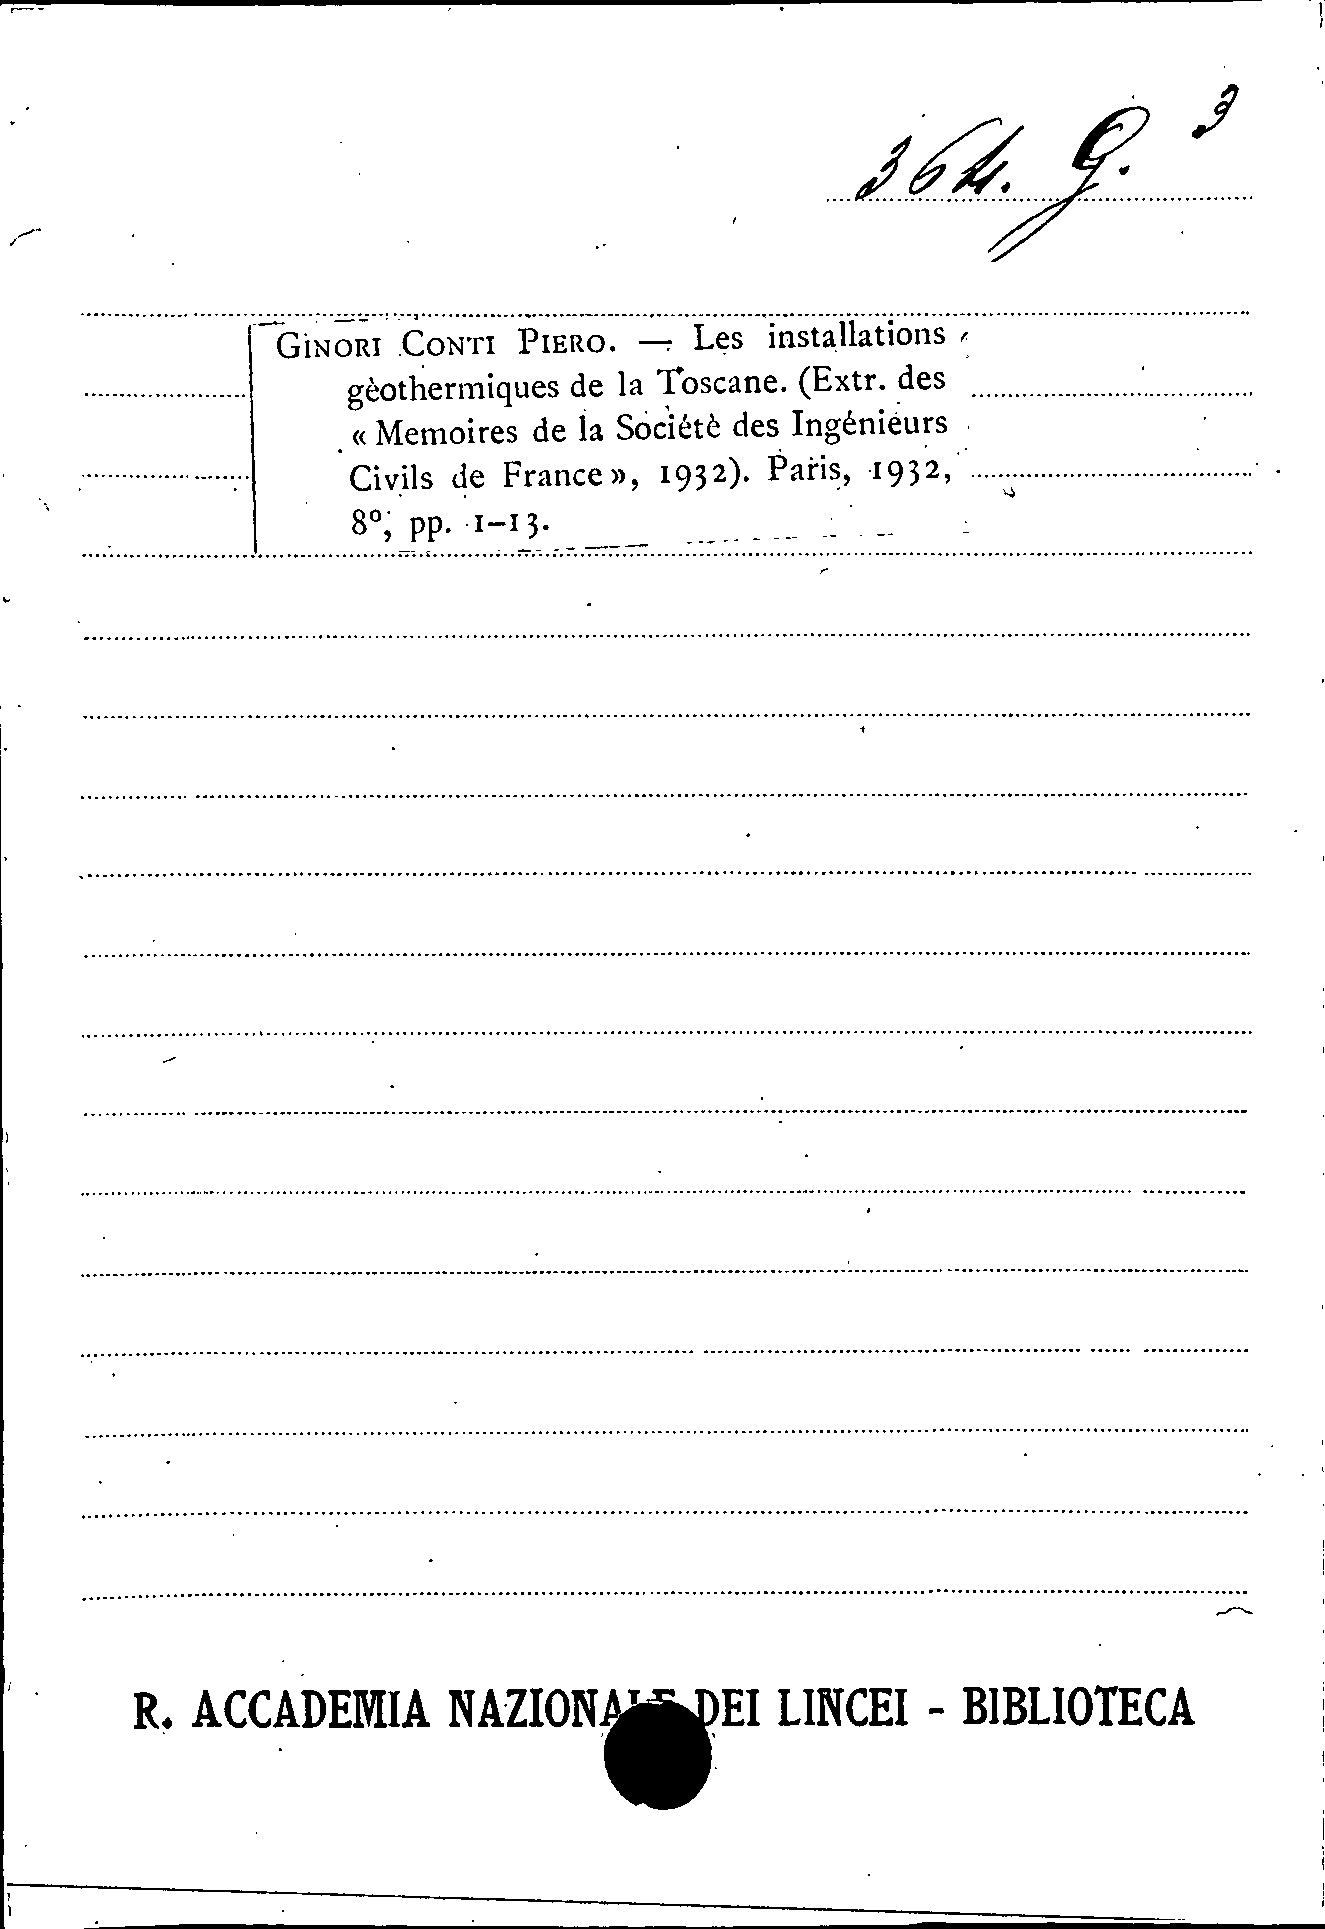 364. G. 3
GINORI CONTI PIERO. — Les installations
gèothermiques de la Toscane. (Extr. des
« Memoires de la Sociétè des Ingénieurs
Civils de France », 1932). Paris, 1932,
8º, pp. 1-13.
R. ACCADEMIA NAZIONALE DEI LINCEI - BIBLIOTECA